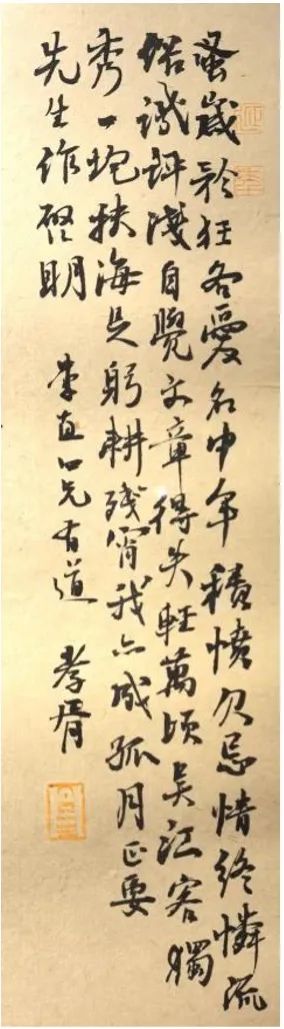 蚤歲矜狂各愛名中年積憤欠忘情終憐流
俗譏評淺自覺文章得失輕萬頃吳江容獨
秀一垞扶海足躬耕殘宵我亦成孤月正要
先生作啓明
季直仁兄有道 孝胥